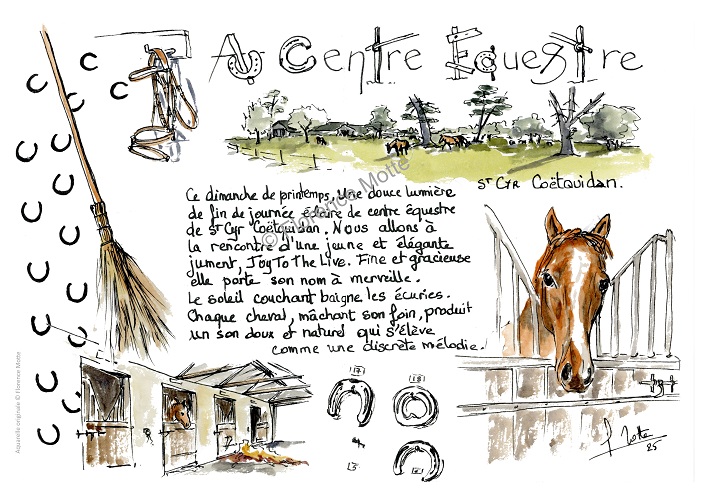 Au Centre Equestre
St Cyr Coëtquidan.
Ce dimanche de printemps, Une douce lumière
de fin de journée éclaire de centre équestre
de St Cyr Coëtquidan. Nous allons à
la rencontre d'une jeune et élégante
jument, Joy To The Live. Fine et gracieuse
elle porte son nom à merveille.
Le soleil couchant baigne les écuries.
Chaque cheval, mâchant son foin, produit
un son doux et naturel qui s'élève
comme une discrète mélodie.
© Florence Motte
17
18
F Motte
25
Aquarelle originale © Florence Motte